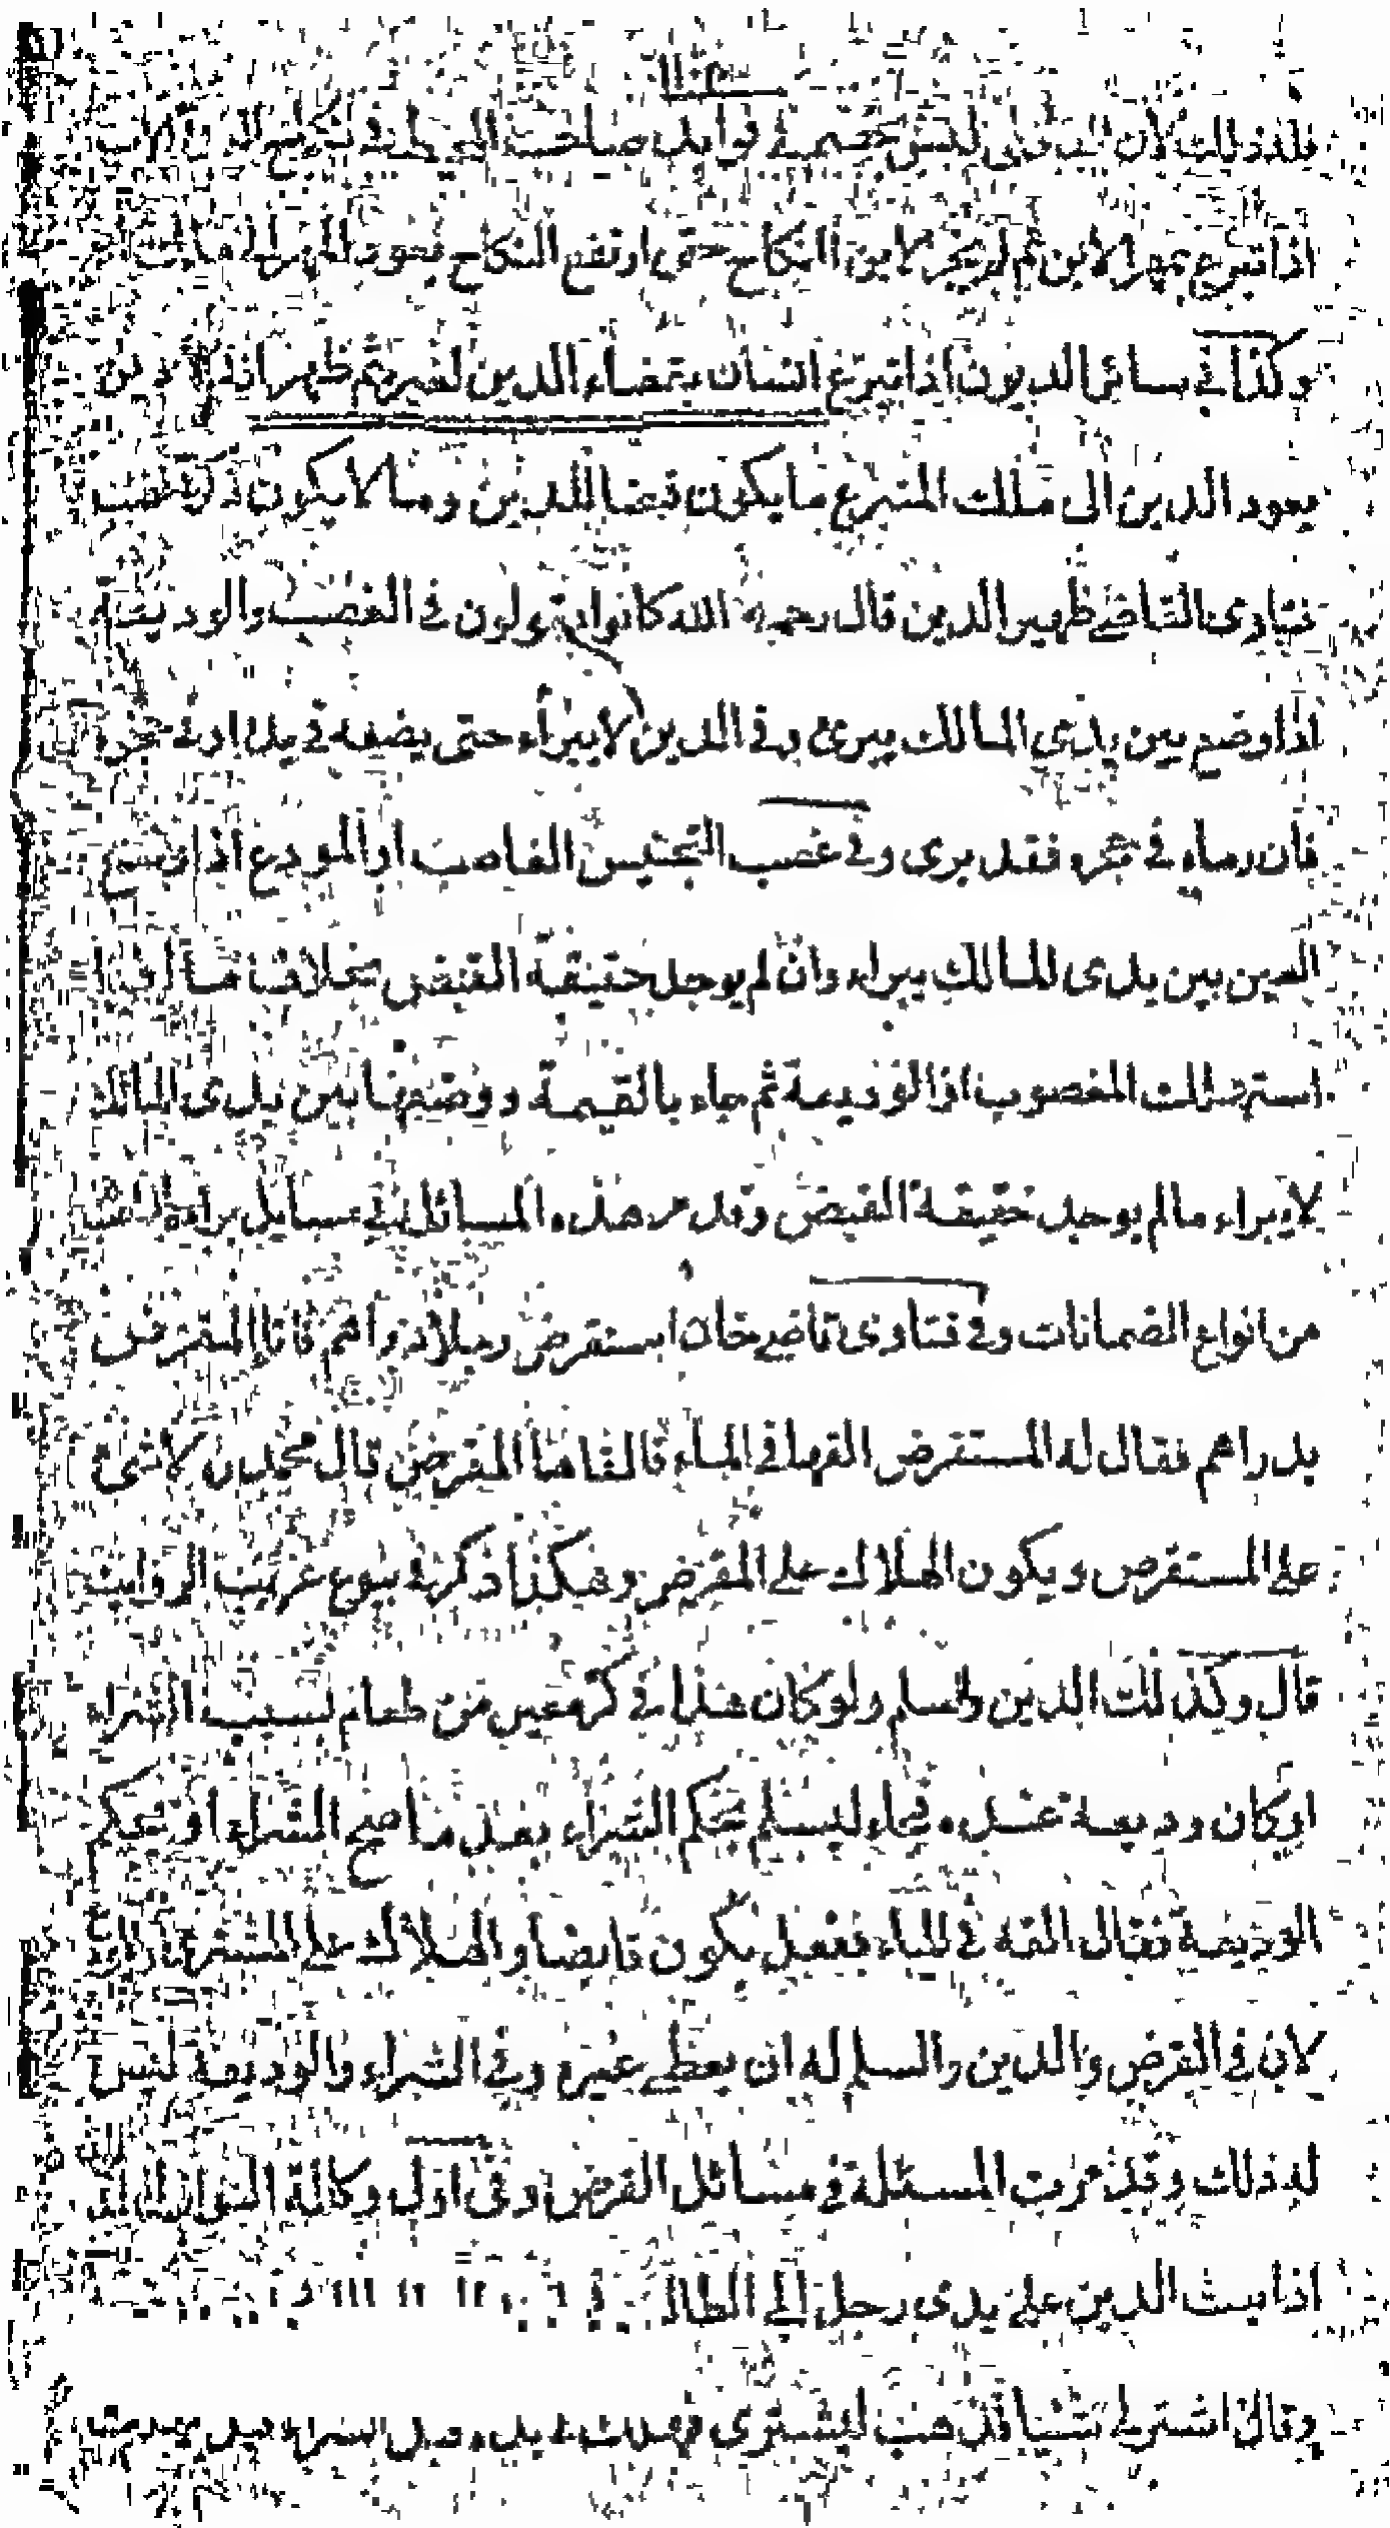 فلذلك لأن
اذا تبرع بمهر الابن ثم لم يجز الابن النكاح حتى ارتفع النكاح يعود المهر الى
وكذا في مسائل الديون اذا تبرع انسان بقضاء الدين لغيره ثم ظهر انه لا دين
يعود الدين الى ملك المتبرع ما يكون قبضا للدين وما لا يكون ذكر
فتاوى القاضي ظهير الدين قال رحمه الله كانوا يقولون في الغصب والوديعة
اذا وضع بين يدي المالك يبرئ وفي الدين لا يبراء حتى يضعه في يده او في حجره
فان رماه في حجره فقد برى وفي غصب التجنيس الغاصب او المودع اذا وضع
العين بين يدى المالك يبراء وان لم يوجد حقيقة القبض بخلاف ما اذا
استهلك المغصوب او الوديعة ثم جاء بالقيمة ووضعها بين يدى المالك
لا يبراء ما لم يوجد حقيقة القبض وقد مر هذه المسائل في مسايل براءة الغاصب
من انواع الضمانات وفي فتاوى قاضي خان استقرض رجلا دراهم فاتا المقرض
بدراهم فقال له المستقرض القها في الماء فالقاها المقرض قال محمد لا شئ
على المستقرض ويكون الهلاك على المقرض وهكذا ذكر في بيوع غريب الرواية
قال وكذلك الدين والسلم ولو كان هذا في كر معين من طعام لسبب الشراء
او كان وديعة عنده فجاء ليسلم بحكم الشراء بعد ما صح الشراء او بحكم
الوديعة فقال القه في الماء ففعل يكون قابضا والهلاك على المشترى
لان في القرض والدين والسلم له ان يعطي غيره وفي الشراء والوديعة ليس
له ذلك وقد مرت المسئلة في مسائل القرض وفي اول وكالة النوازل
اذا بعث الدين على يدى رجل الى الطالب
وقال اشتر لي شيئا فذهب ليشترى